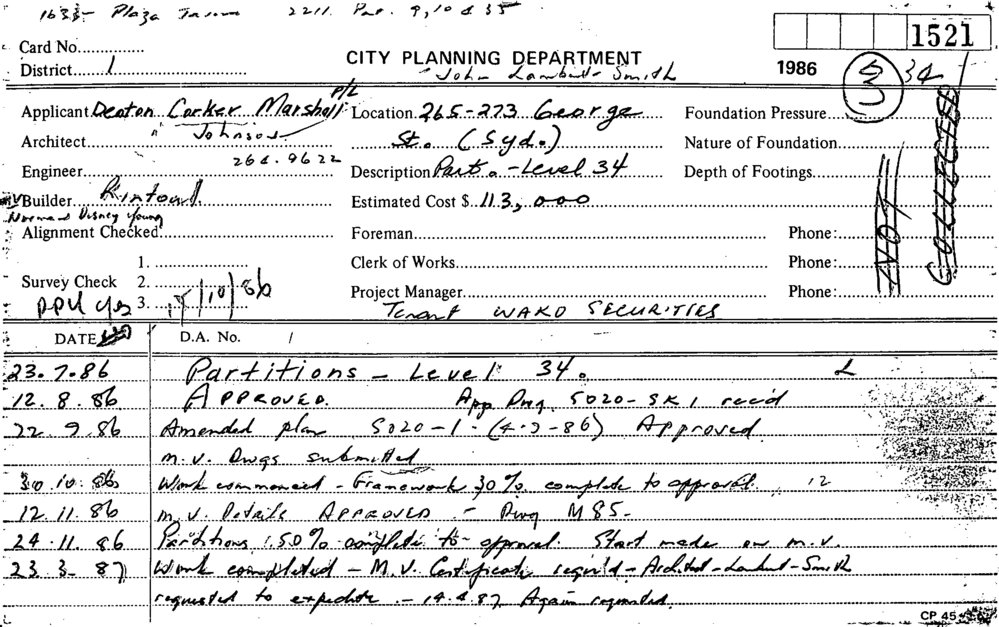 1633- Plaza 2211. 9, 10 & 35
Card No.
District 1
CITY PLANNING DEPARTMENT
John Lambert-Smith
1521
1986
3 34
Applicant Denton Corker Marshall P/L
Architect " Johnson
264.9622
Engineer
Builder Rintoul
M/V Norman Disney Young
Alignment Checked
Survey Check 1. 2. 3.
yes /10/86
Location 265-273 George
St. (Syd.)
Description Part. - Level 34
Estimated Cost $ 113,000
Foreman
Clerk of Works
Project Manager
Tenant WAKO SECURITIES
Foundation Pressure
Nature of Foundation
Depth of Footings
Phone:
Phone:
Phone:
NOT
COLLECTED
DATE D.A. No. /
23.7.86 Partitions - Level 34. L
12.8.86 APPROVED. App. Dwg. 5020-SK1 rec'd
22.9.86 Amended plan 5020-1 - (4-9-86) Approved
M.V. Dwgs submitted
30.10.86 Work commenced - Framework 30% complete to approval. 12
12.11.86 M.V. Details APPROVED - Dwg M85-
24.11.86 Partitions 50% complete to approval. Start made on M.V.
23.3.87 Work completed - M.V. Certificate requir'd - Architect - Lambert-Smith
requested to expedite - 14.4.87 Again requested.
CP 45